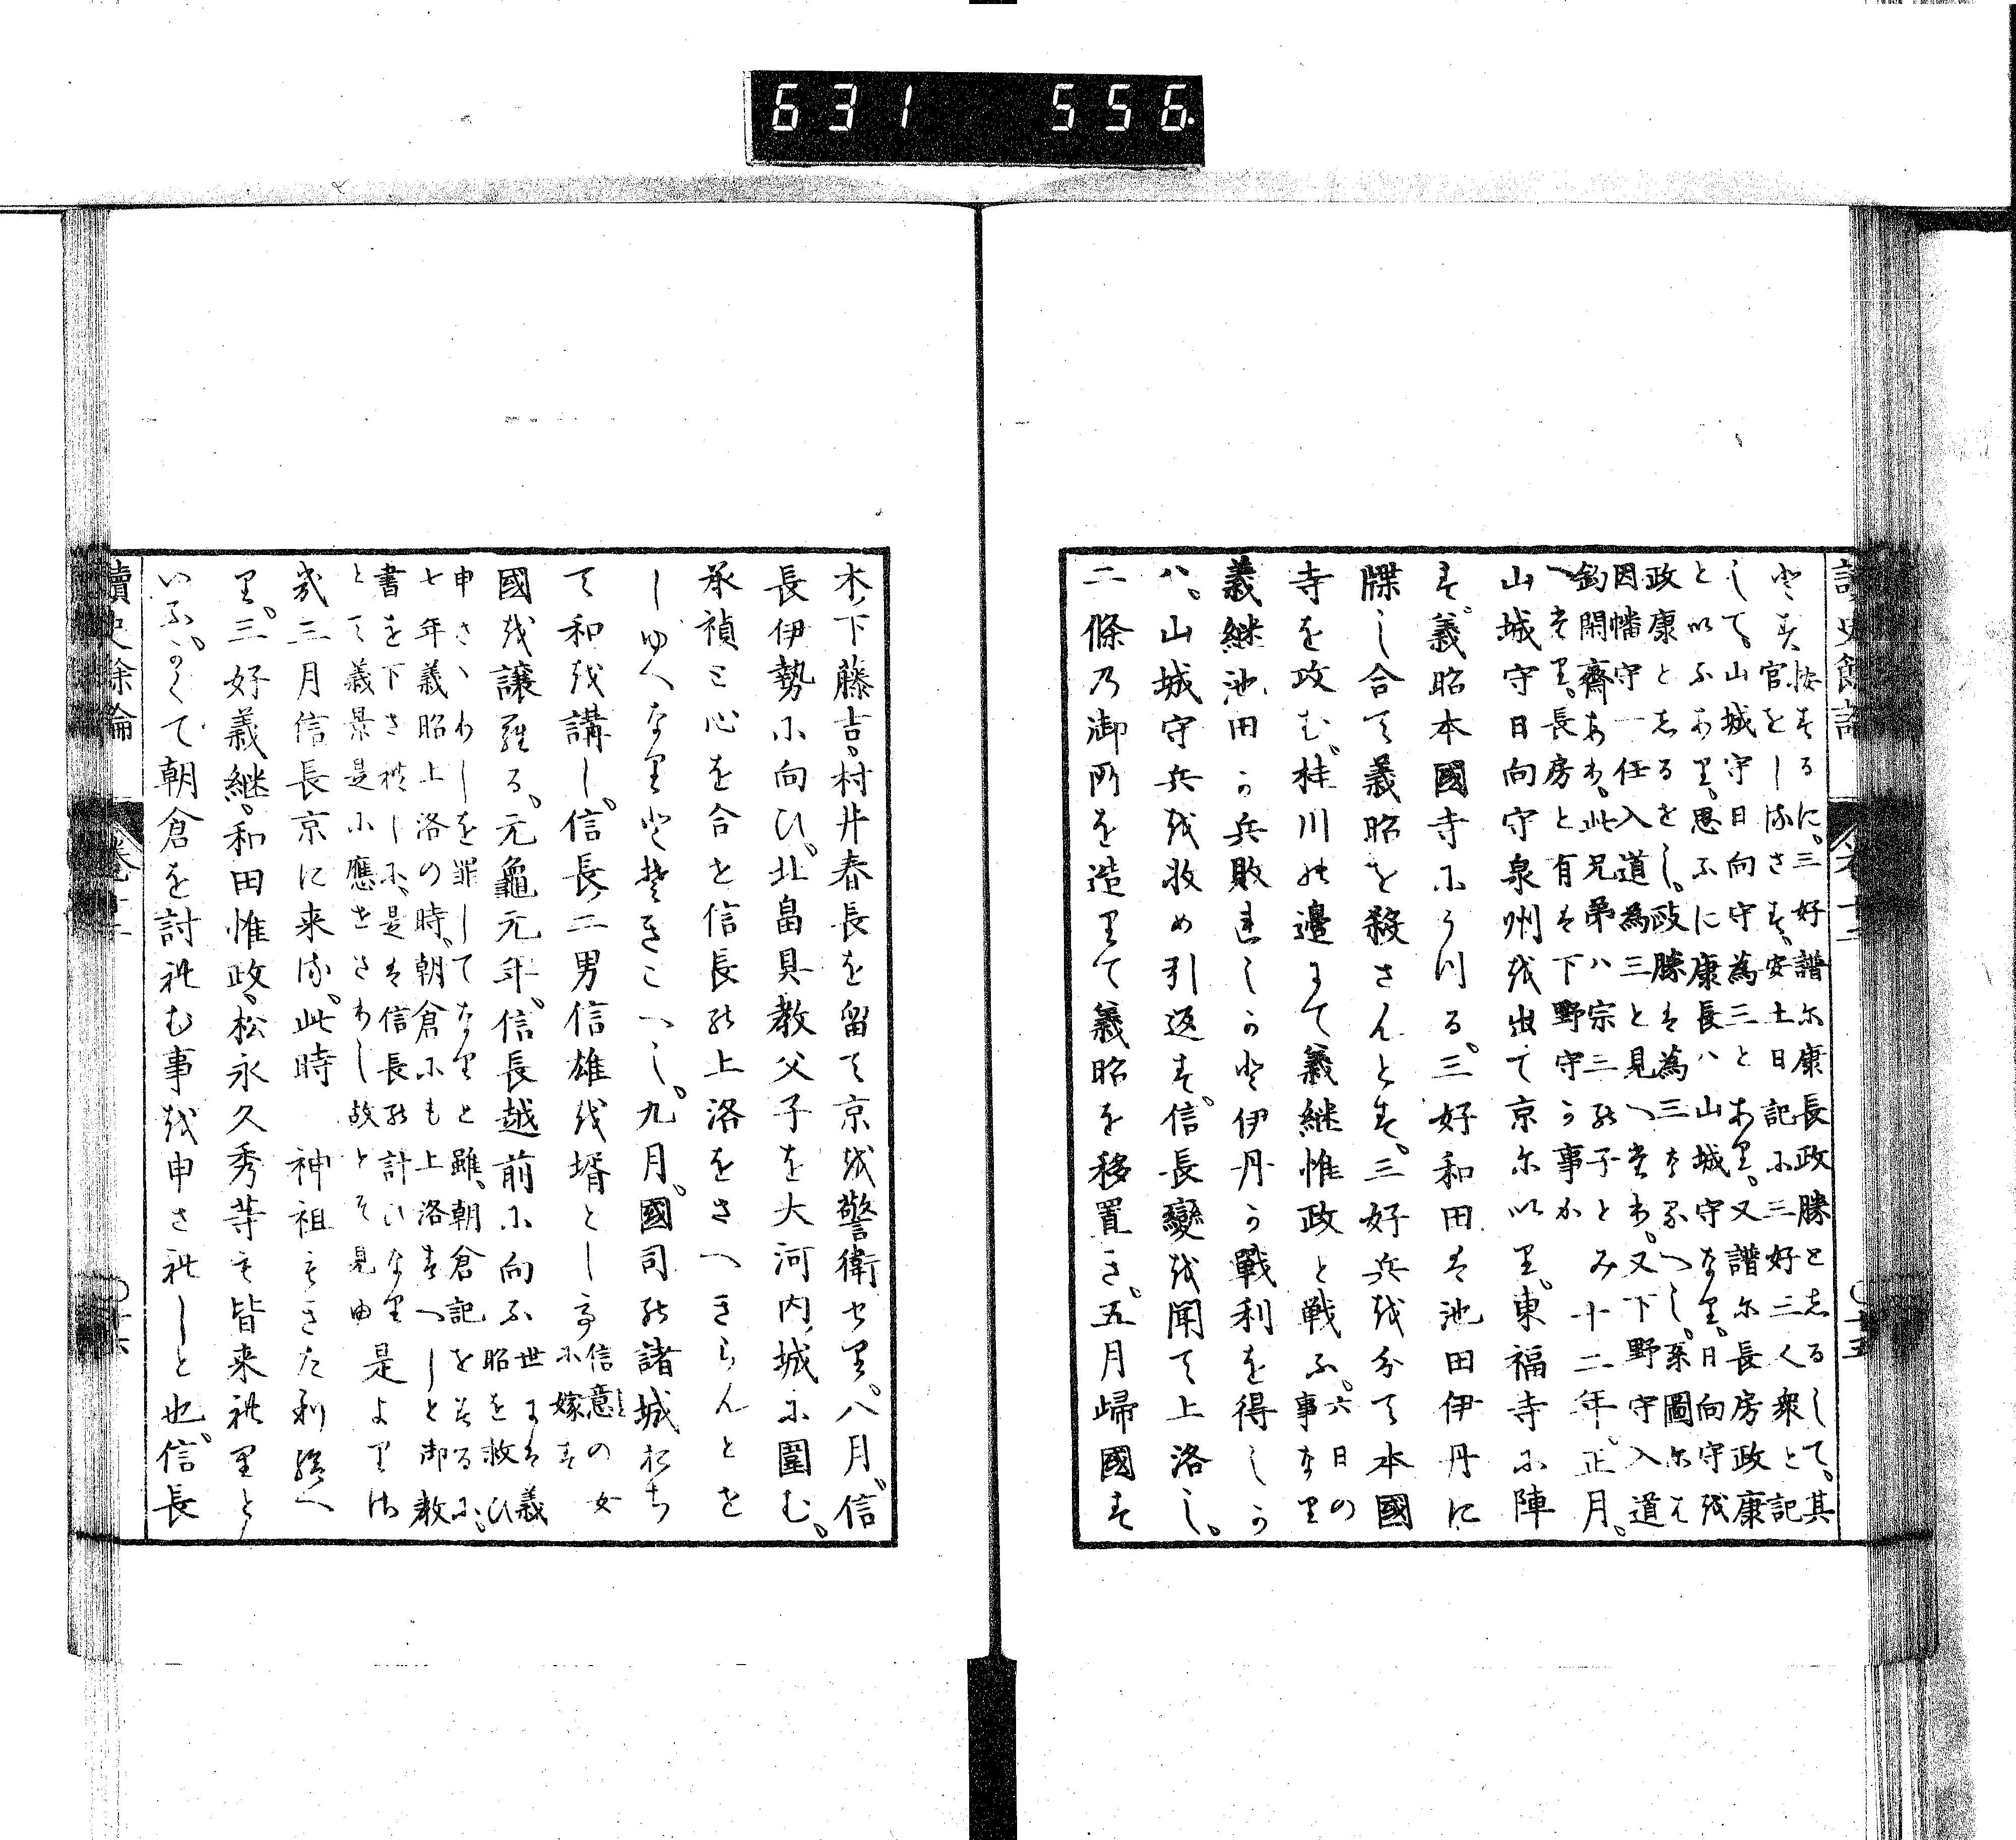 631 556
讀史餘論 巻十二 ○十五
按するに三好譜に康長政勝としるして其
官をしるさす安土日記に三好三人衆と記
して山城守日向守為三とあり又譜に長房政康
と以ふあり思ふに康長ハ山城守なり日向守を
政康としるをし政勝は為三なるへし系圖には
因幡守一任入道為三と見へたり又下野守入道
釣閑齋あり此兄弟ハ宗三の子とみ
へたり長房と有は下野守か事か十二年正月
山城守日向守泉州を出て京に以り東福寺に陣
す義昭本國寺にうつる三好和田は池田伊丹に
牒し合て義昭を殺さんとす三好兵を分て本國
寺を攻む桂川の邊にて義継惟政と戦ふ六日の事なり
義継池田か兵敗れしかと伊丹か戰利を得しか
ハ山城守兵を收め引返す信長變を聞て上洛し
二條乃御所を造りて義昭を移置き五月歸國す
木下藤吉村井春長を留て京を警衛せり八月信
長伊勢に向ひ北畠具教父子を大河内城に圍む
承禎と心を合せ信長の上洛をさへきらんとせ
しゆへなりと聞こへし九月國司の諸城おち
て和を講し信長二男信雄を壻とし信意の女に嫁す
國を讓らる元龜元年信長越前に向ふ世には義昭を救ひ
申さゝりしを罪してなりと雖朝倉記をみるに
七年義昭上洛の時朝倉にも上洛すへしと御教
書を下されしに是は信長の計ひなり
とて義景是に應せさりし故とそ見ゆ是よりさ
き三月信長京に来る此時 神祖もきたり給へ
り三好義継和田惟政松永久秀等も皆来れりと
いふかくて朝倉を討れむ事を申されしと也信長
讀史餘論 巻十二 ○十六